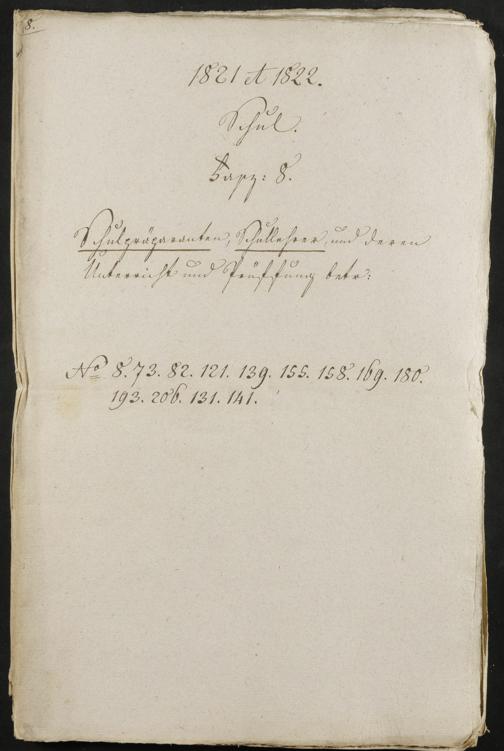 8.
1821 et 1822.
Schul.
Kapz: 8.
Schulpräparanten, Schullehrer, und deren
Unterricht und Prüffung betr:
No 8. 73. 82. 121. 139. 155. 158. 169. 180.
193. 206. 131. 141.